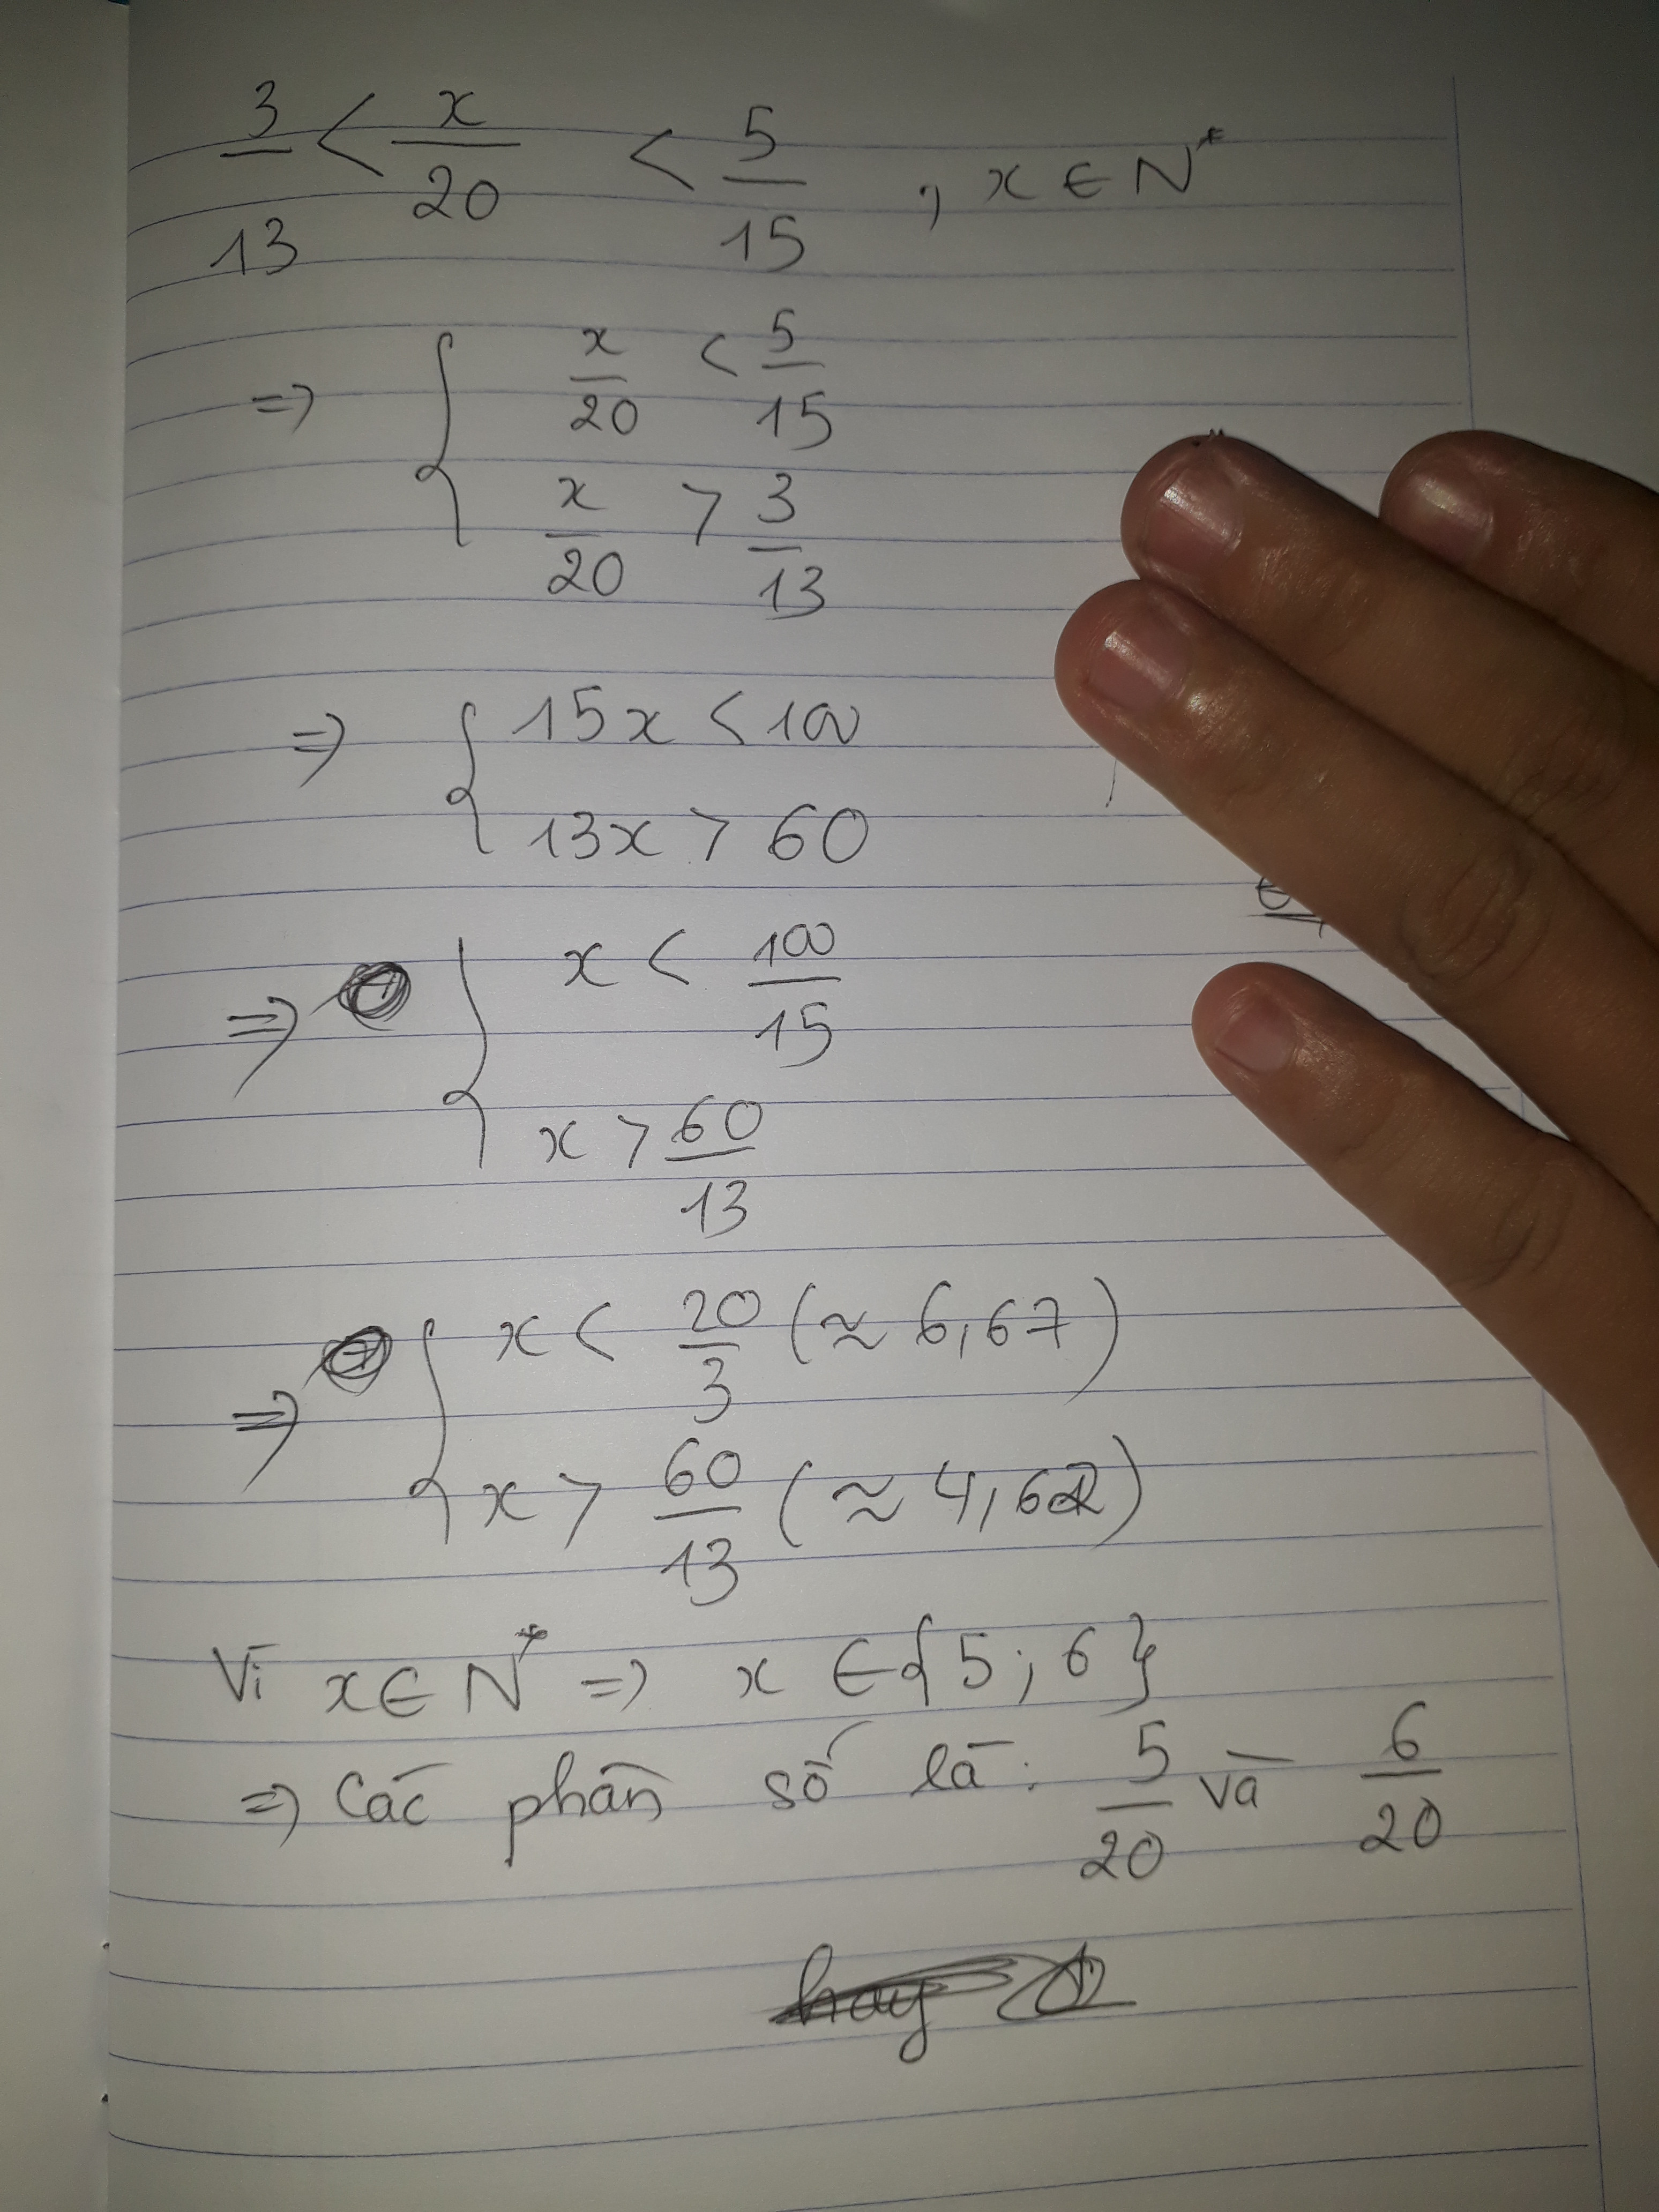 3/13 < x/20 < 5/15 , x ∈ N*
=> { x/20 < 5/15
x/20 > 3/13
=> { 15x < 100
13x > 60
=> { x < 100/15
x > 60/13
=> { x < 20/3 (≈ 6,67)
x > 60/13 (≈ 4,62)
Vì x ∈ N* => x ∈ {5; 6}
=> Các phân số là: 5/20 và 6/20
hay